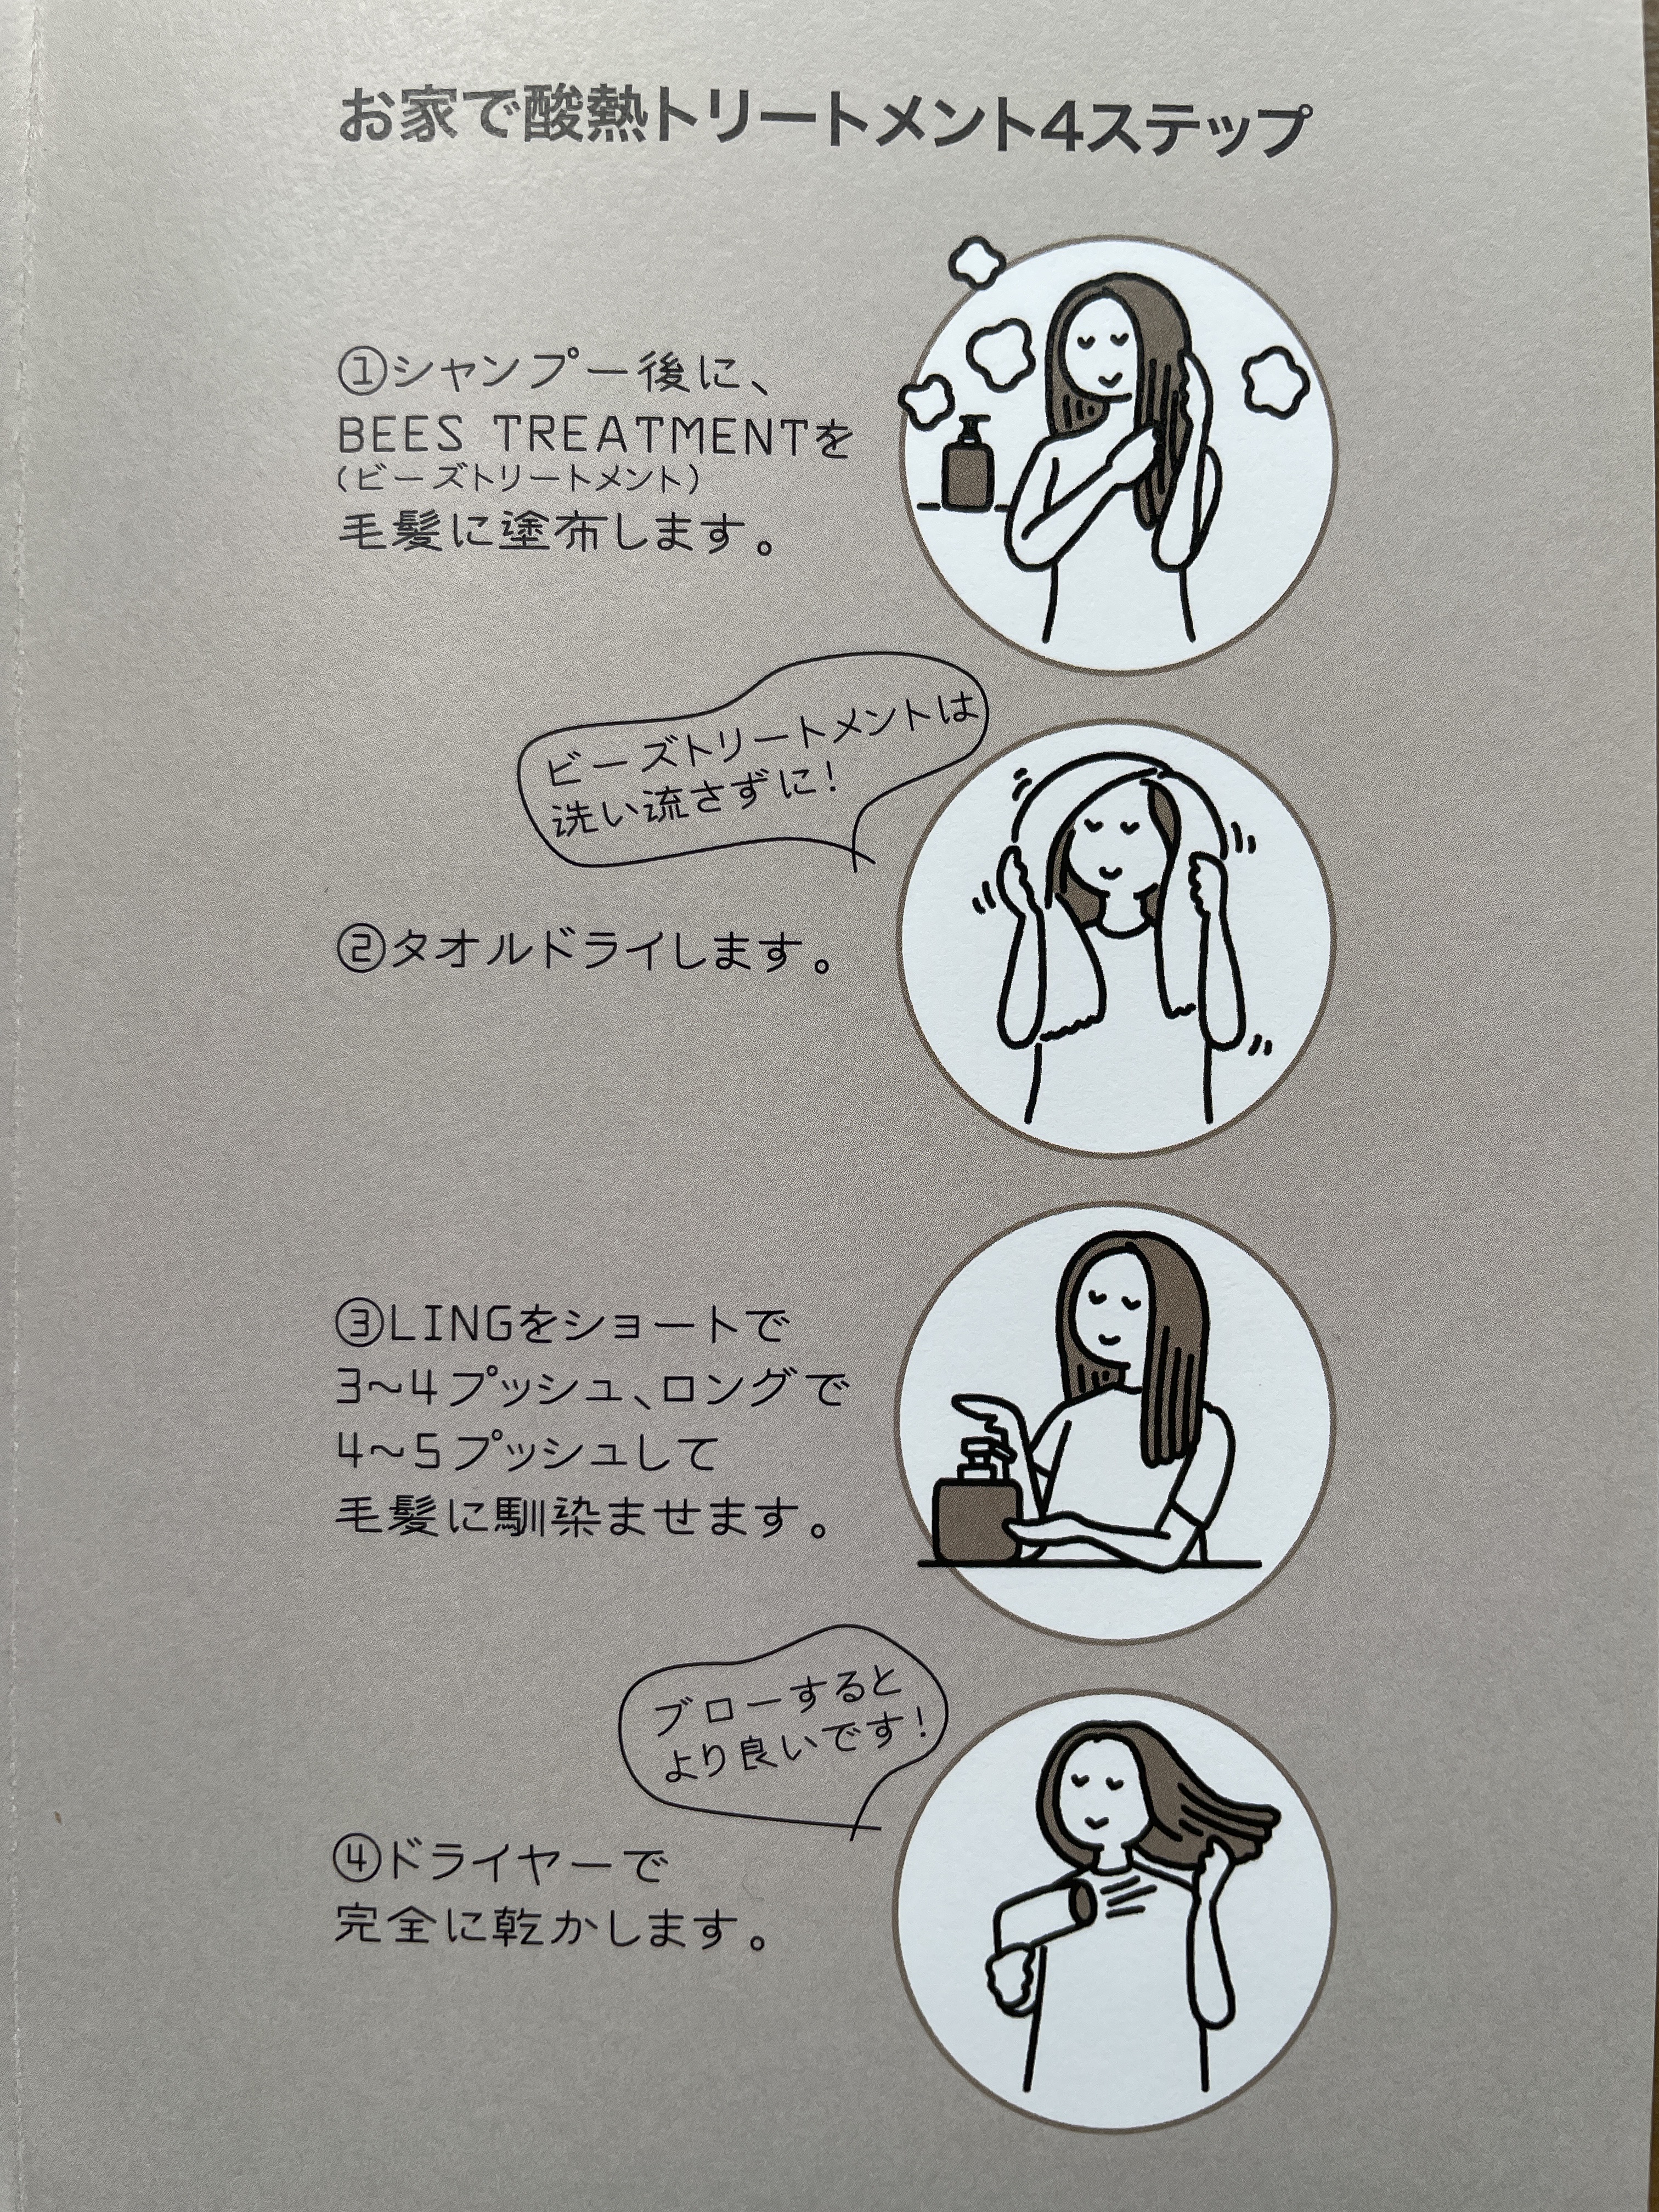 お家で酸熱トリートメント4ステップ
①シャンプー後に、
BEES TREATMENTを
(ビーズトリートメント)
毛髪に塗布します。
ビーズトリートメントは
洗い流さずに!
②タオルドライします。
③LINGをショートで
3~4プッシュ、ロングで
4~5プッシュして
毛髪に馴染ませます。
ブローすると
より良いです!
④ドライヤーで
完全に乾かします。